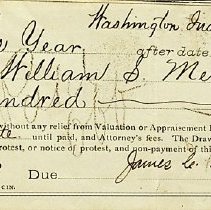 Washington Ind
Year after date
William S. Me
hundred
without any relief from Valuation or Appraisement
until paid, and Attorney's fees. The Draw
protest, or notice of protest, and non-payment of thi
Due James C.
CIN.